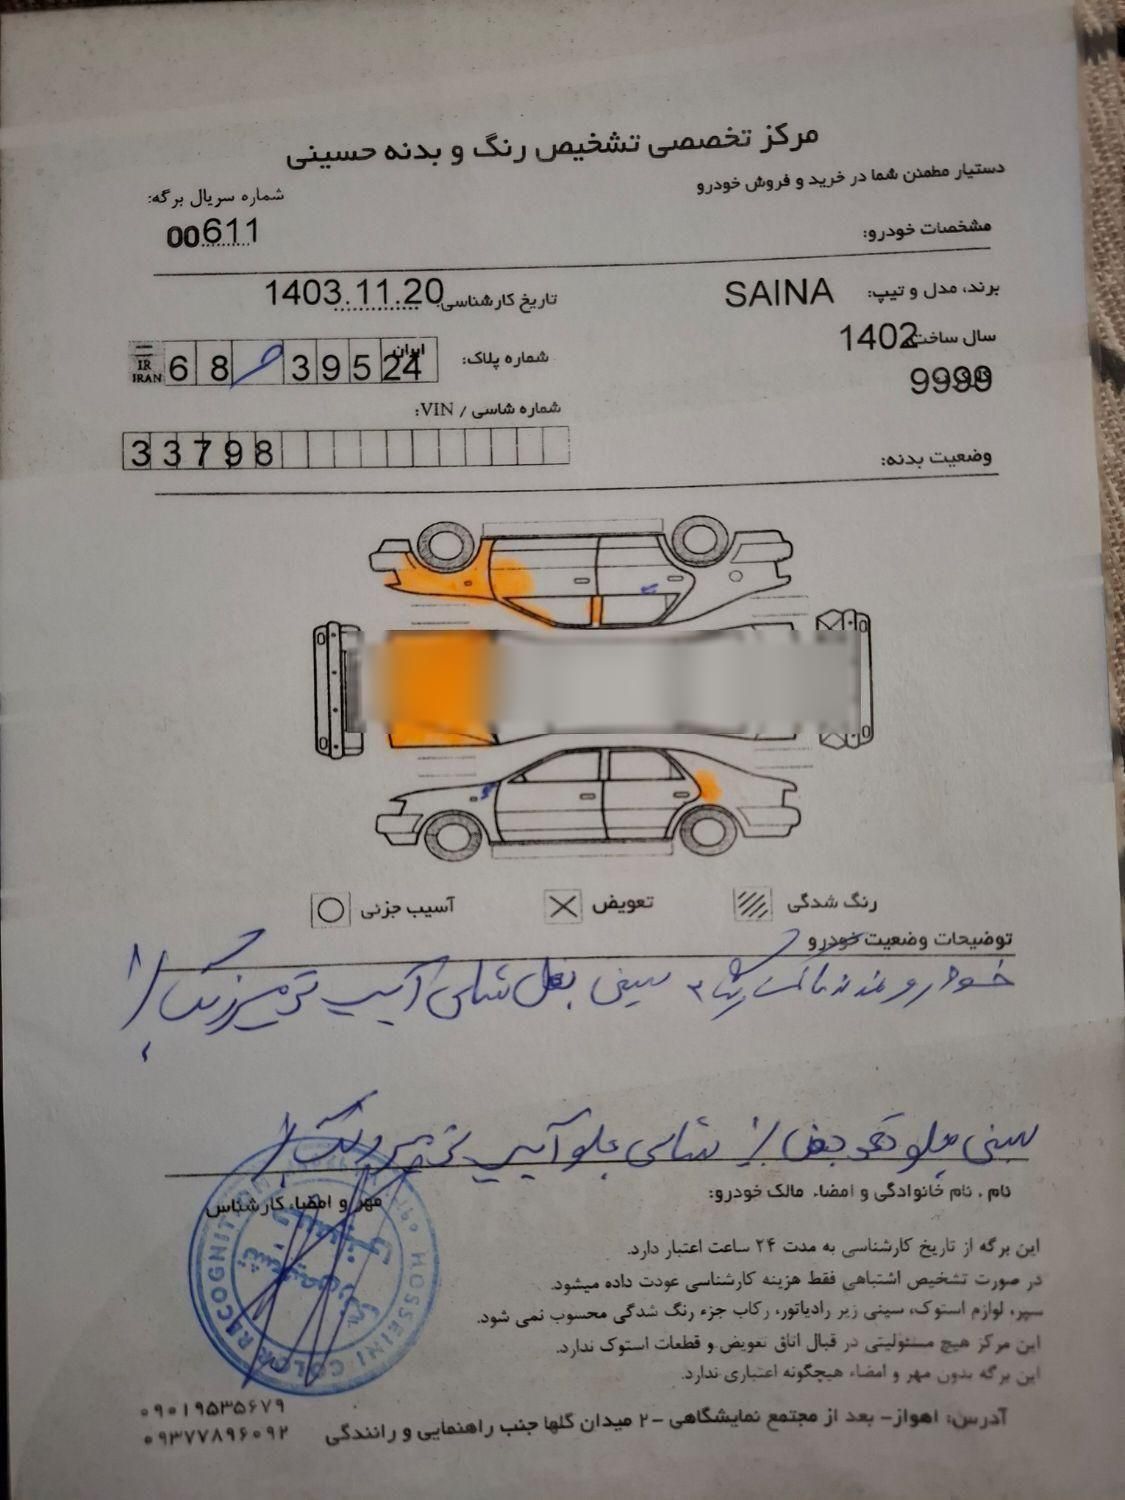 مرکز تخصصی تشخیص رنگ و بدنه حسینی
دستیار مطمئن شما در خرید و فروش خودرو
شماره سریال برگه:
00611
مشخصات خودرو:
برند، مدل و تیپ: SAINA
تاریخ کارشناسی: 1403.11.20
سال ساخت 1402
شماره پلاک: IR IRAN 68 395 ایران 24
شماره شاسی / VIN:
33798
وضعیت بدنه:
رنگ شدگی
تعویض
آسیب جزئی
توضیحات وضعیت خودرو
خودرو سینی بغل شاسی آسیب ترمیم رنگ
سینی جلو تعویض شاسی جلو آسیب ترمیم رنگ
نام ، نام خانوادگی و امضاء مالک خودرو:
مهر و امضاء کارشناس
HOSSEINI COLOR RECOGNITION
این برگه از تاریخ کارشناسی به مدت ۲۴ ساعت اعتبار دارد.
در صورت تشخیص اشتباهی فقط هزینه کارشناسی عودت داده میشود.
سپر، لوازم استوک، سینی زیر رادیاتور، رکاب جزء رنگ شدگی محسوب نمی شود.
این مرکز هیچ مسئولیتی در قبال اتاق تعویض و قطعات استوک ندارد.
این برگه بدون مهر و امضاء هیچگونه اعتباری ندارد.
آدرس: اهواز- بعد از مجتمع نمایشگاهی -۲ میدان گلها جنب راهنمایی و رانندگی
۰۹۰۱۹۵۳۵۶۷۹
۰۹۳۷۷۸۹۶۰۹۲